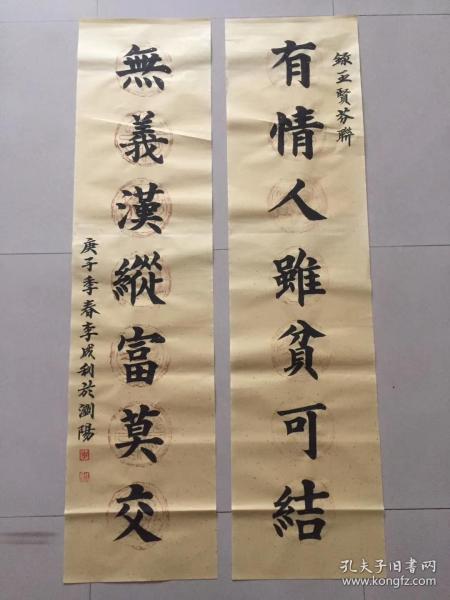 錄王賢芬聯
有情人雖貧可結
無義漢縱富莫交
庚子季春李成利於瀏陽
孔夫子旧书网
www.kongfz.com